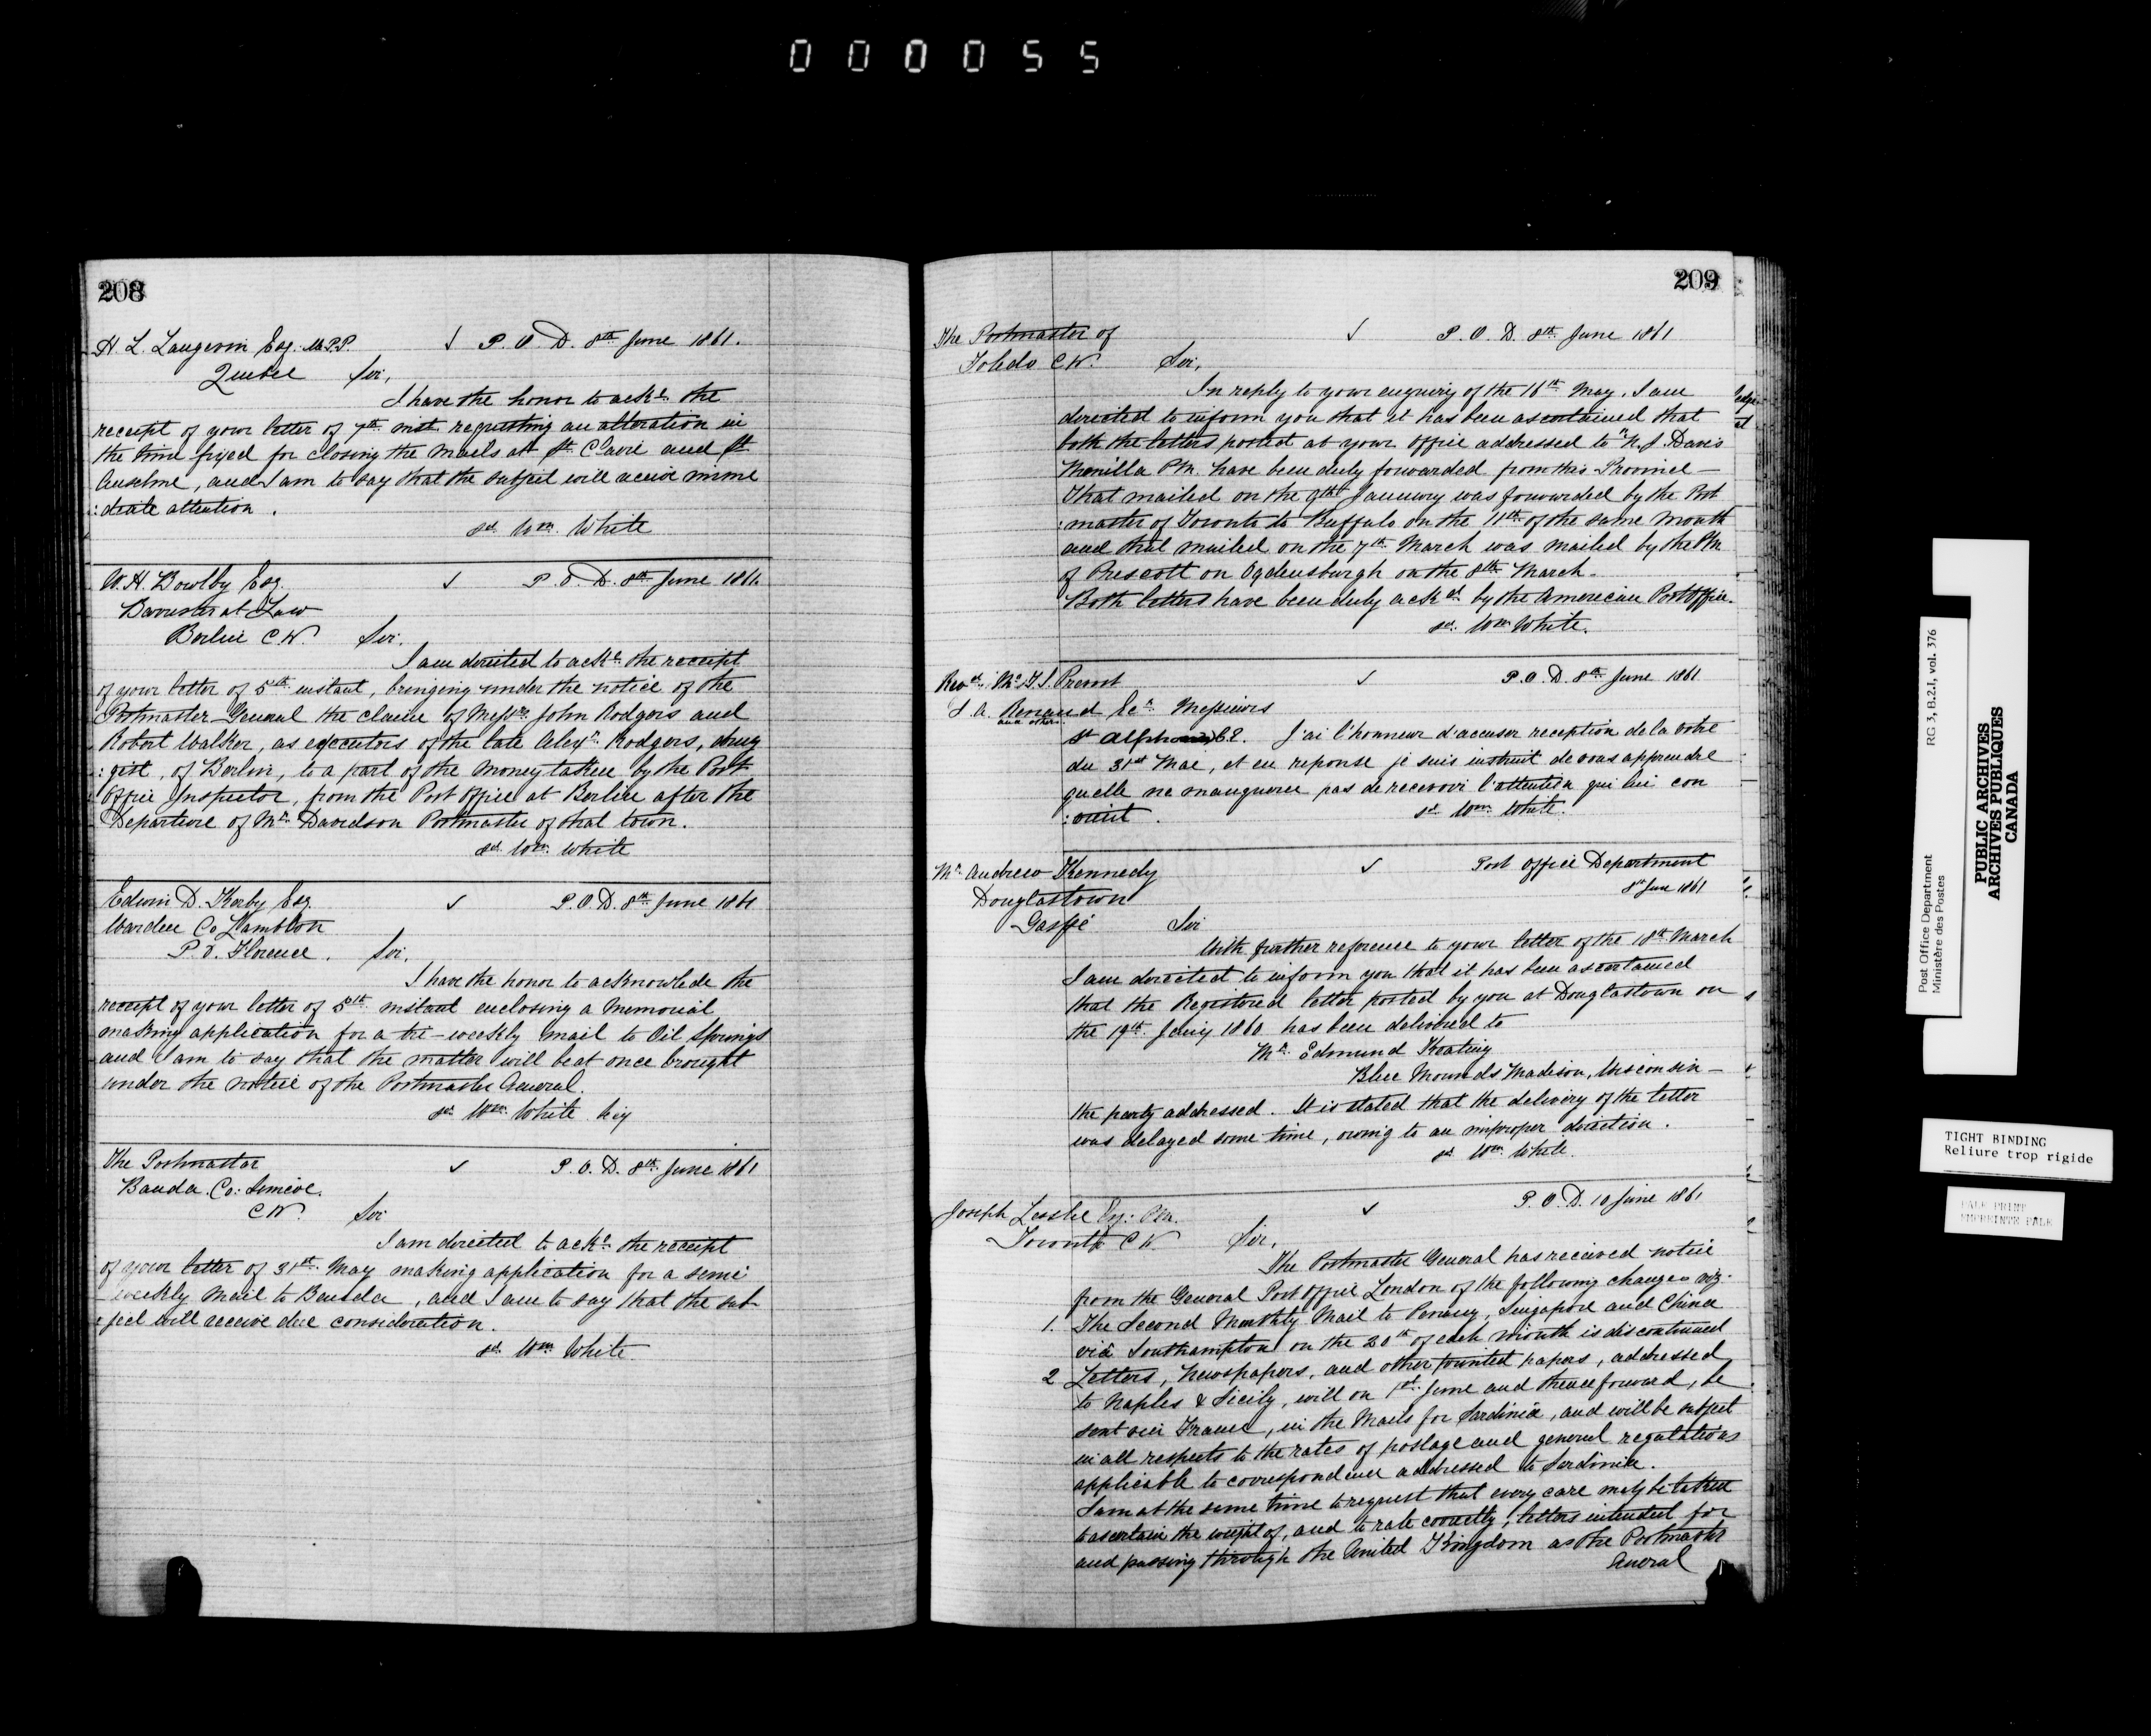 000055
208
H. L. Langevin Esq. M.P.P. ✓ P. O. D. 8th June 1861.
Quebec Sir,
I have the honor to acke. the
receipt of your letter of 7th inst. requesting an alteration in
the time fixed for closing the Mails at St. Claire and St.
Anselme, and I am to say that the subject will receive imme
:diate attention.
sd. Wm. White
W. H. Bowlby Esq. ✓ P. O. D. 8th June 1861.
Barrister at Law
Berlin C.W. Sir.
I am directed to acke. the receipt
of your letter of 5th instant, bringing under the notice of the
Postmaster General the claim of Messrs. John Rodgers and
Robert Walker, as executors of the late Alexr. Rodgers, drug
:gist, of Berlin, to a part of the money taken by the Post
Office Inspector, from the Post Office at Berlin after the
Departure of Mr. Davidson Postmaster of that town.
sd. Wm. White
Edwin D. Kerby Esq. ✓ P. O. D. 8th June 1861
Warden Co Lambton
P. O. Florence. Sir,
I have the honor to acknowlede the
receipt of your letter of 5th instant enclosing a Memorial
making application for a tri-weekly mail to Oil Springs
and I am to say that the matter will be at once brought
under the notice of the Postmaster General.
sd. Wm. White
The Postmaster ✓ P. O. D. 8th June 1861
Banda. Co: Simcoe.
C W. Sir
I am directed to acke. the receipt
of your letter of 31st. May making application for a semi
weekly Mail to Banda, and I am to say that the sub
:ject will receive due consideration.
sd. Wm. White
209
The Postmaster of ✓ P. O. D. 8th June 1861
Toledo C.W. Sir,
In reply to your enquiry of the 16th May, I am
directed to inform you that it has been ascertained that
both the letters posted at your office addressed to N. J. Davis
Manilla have been duly forwarded from this Province —
That mailed on the 9th January was forwarded by the Post
:master of Toronto to Buffalo on the 11th of the same month
and that mailed on the 7th March was mailed by the PM
of Prescott on Ogdensburgh on the 8th March.
Both letters have been duly acked. by the American Post Office.
sd. Wm. White.
Revd. T. S. Provost ✓ P. O. D. 8th June 1861
L. A. Renaud Messieurs
and others
St Alphonse J'ai l'honneur d'accuser reception de la votre
du 31st Mae, et en reponse je suis instruit de vous apprendre
quelle ne manquera pas de recevoir l'attention qui lui con
:vient.
sd. Wm. White.
Mr. Andrew Kennedy ✓ Post Office Department
8th June 1861
Douglastown
Gaspé Sir
With further reference to your letter of the 18th March
I am directed to inform you that it has been ascertained
that the Registered letter posted by you at Douglastown on
the 19th. Jany 1860 has been delivered to
Mr. Edmund Keating
Blue Mounds Madison, Wisconsin —
the party addressed. It is stated that the delivery of the letter
was delayed some time, owing to an improper direction.
sd. Wm. White.
Joseph Leslie Esq: PM. ✓ P. O. D. 10 June 1861
Toronto C W. Sir,
The Postmaster General has received notice
from the General Post Office London of the following changes viz.
1. The Second Monthly Mail to Penang, Singapore and China
viâ Southampton on the 20th of each month is discontinued
2 Letters, Newspapers, and other printed papers, addressed
to Naples & Sicily, will on 1st. June and thenceforward, be
sent via France, in the Mails for Sardinia, and will be subject
in all respects to the rates of postage and general regulations
applicable to correspondence addressed to Sardinia.
I am at the same time to request that every care may be taken
to ascertain the weight of, and to rate correctly, letters intended for
and passing through the United Kingdom as the Postmaster
General
Post Office Department
Ministère des Postes
RG 3, B.2.1, vol. 376
PUBLIC ARCHIVES
ARCHIVES PUBLIQUES
CANADA
TIGHT BINDING
Reliure trop rigide
PALE PRINT
EMPREINTE PALE